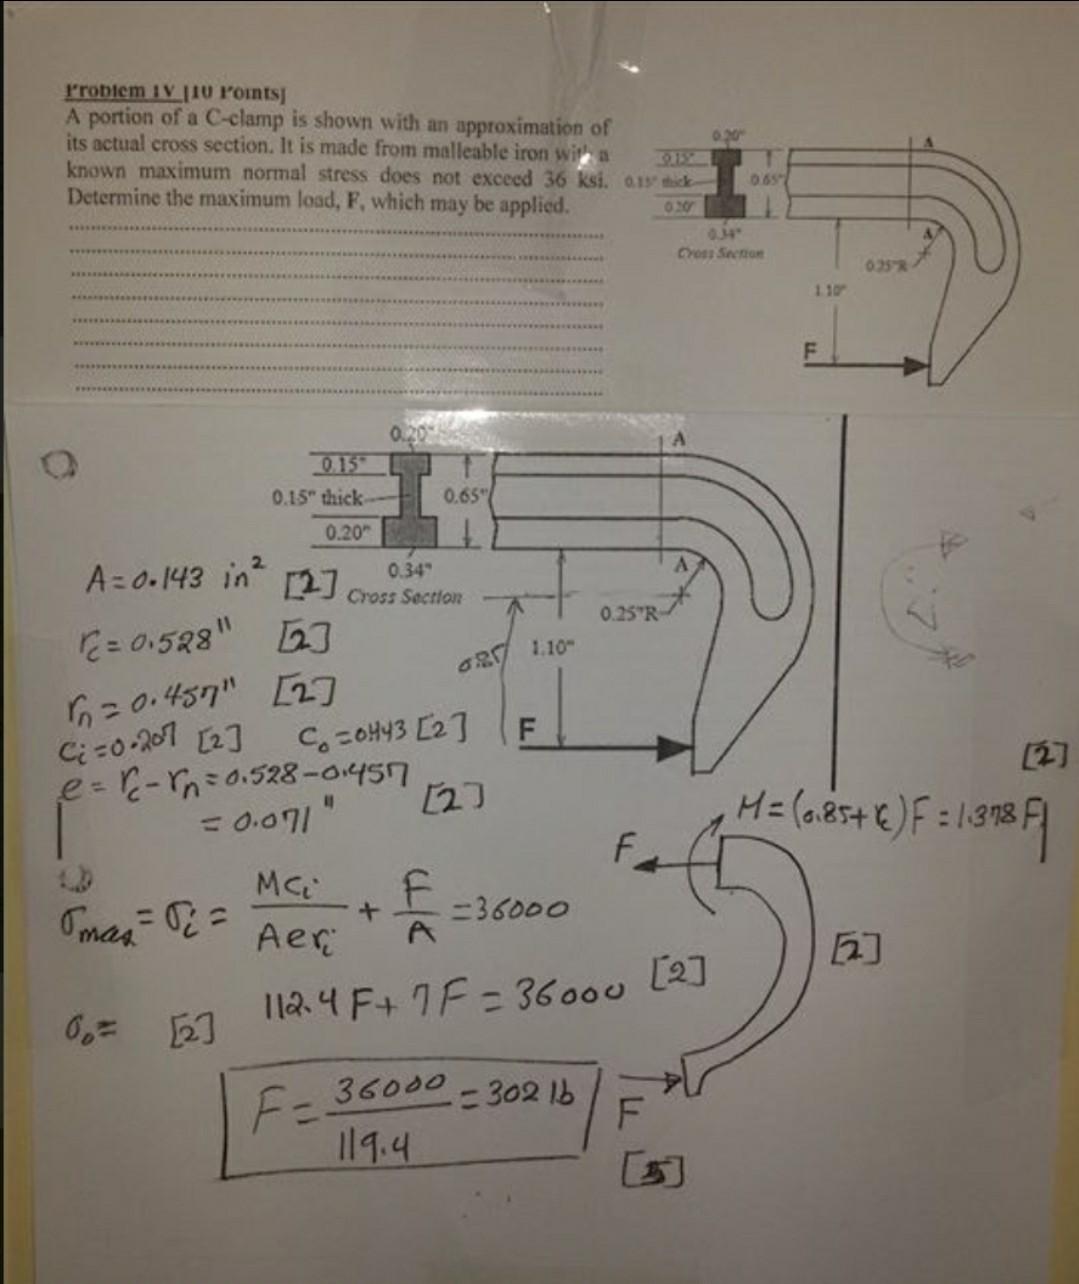 Problem IV [10 Points]
A portion of a C-clamp is shown with an approximation of
its actual cross section. It is made from malleable iron with a
known maximum normal stress does not exceed 36 ksi.
Determine the maximum load, F, which may be applied.
0.20"
0.15"
0.15" thick
0.65"
0.20"
0.34"
Cross Section
A
A
0.25"R
1.10"
F
0.20"
0.15"
0.15" thick
0.65"
0.20"
0.34"
Cross Section
A
A
0.25"R
1.10"
0.85
F
A = 0.143 in² [2]
rc = 0.528" [2]
rn = 0.457" [2]
Ci = 0.207 [2] Co = 0.443 [2]
e = rc - rn = 0.528 - 0.457
= 0.071" [2]
[2]
M = (0.85 + rc) F = 1.378 F
F
σmax = σi = MCi / Aeri + F / A = 36000
[2]
112.4 F + 7 F = 36000 [2]
σo = [2]
F = 36000 / 119.4 = 302 lb
F
[5]